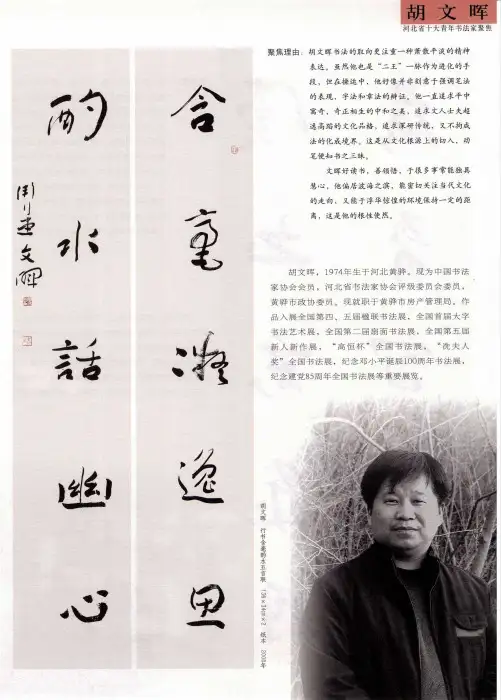 胡文晖
河北省十大青年书法家聚焦
聚焦理由：胡文晖书法的取向更注重一种萧散平淡的精神
表达，虽然他也是“二王”一脉作为进化的手
段，但在操控中，他好像并非刻意于强调笔法
的表现，字法和章法的辩证，他一直追求平中
寓奇，奇正相生的中和之美，追求文人士夫超
逸高蹈的文化品格，追求深研传统，又不拘成
法的化成境界。这是从文化根源上的切入，动
笔便知书之三昧。
文晖好读书，善领悟，于很多事常能独具
慧心，他偏居渤海之滨，能密切关注当代文化
的走向，又能于浮华惊惶的环境保持一定的距
离，这是他的根性使然。
胡文晖，1974年生于河北黄骅。现为中国书法
家协会会员，河北省书法家协会评级委员会委员，
黄骅市政协委员。现就职于黄骅市房产管理局。作
品入展全国第四、五届楹联书法展，全国首届大字
书法艺术展，全国第二届扇面书法展，全国第五届
新人新作展，“高恒杯”全国书法展，“冼夫人
奖”全国书法展，纪念邓小平诞辰100周年书法展，
纪念建党85周年全国书法展等重要展览。
含毫凝逸思
酌水話幽心
文暉
胡文晖 行书含毫酌水五言联 138×34cm×2 纸本 2008年